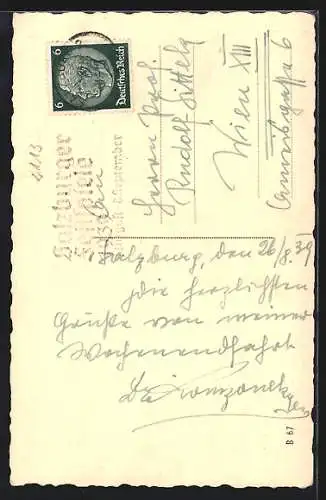 6 Deutsches Reich 6
Salzburger
Festspiele
September
Herrn Prof.
Rudolf
Wien XIII
6
4113
Salzburg, den 26/8.39
die herzlichsten
Grüße von meiner
Wochenendfahrt
B 67